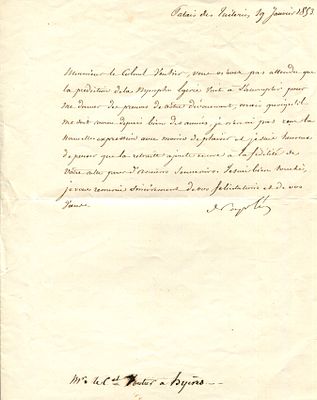 Palais des Tuileries, 19 Janvier 1853.
Monsieur le Colonel Vautier, vous n'avez pas attendu que
la prédiction de la Nymphe Egérie vint à s'accomplir pour
me donner des preuves de votre dévouement, mais quoiqu'il
me soit connu depuis bien des années, je n'en ai pas reçu la
nouvelle expression avec moins de plaisir et je suis heureux
de penser que la retraite ajoute encore à la fidélité de
votre culte pour d'anciens souvenirs. J'en suis bien touché,
je vous remercie sincèrement de vos félicitations et de vos
vœux.
Mr. le Cel. Vautier à Hyères